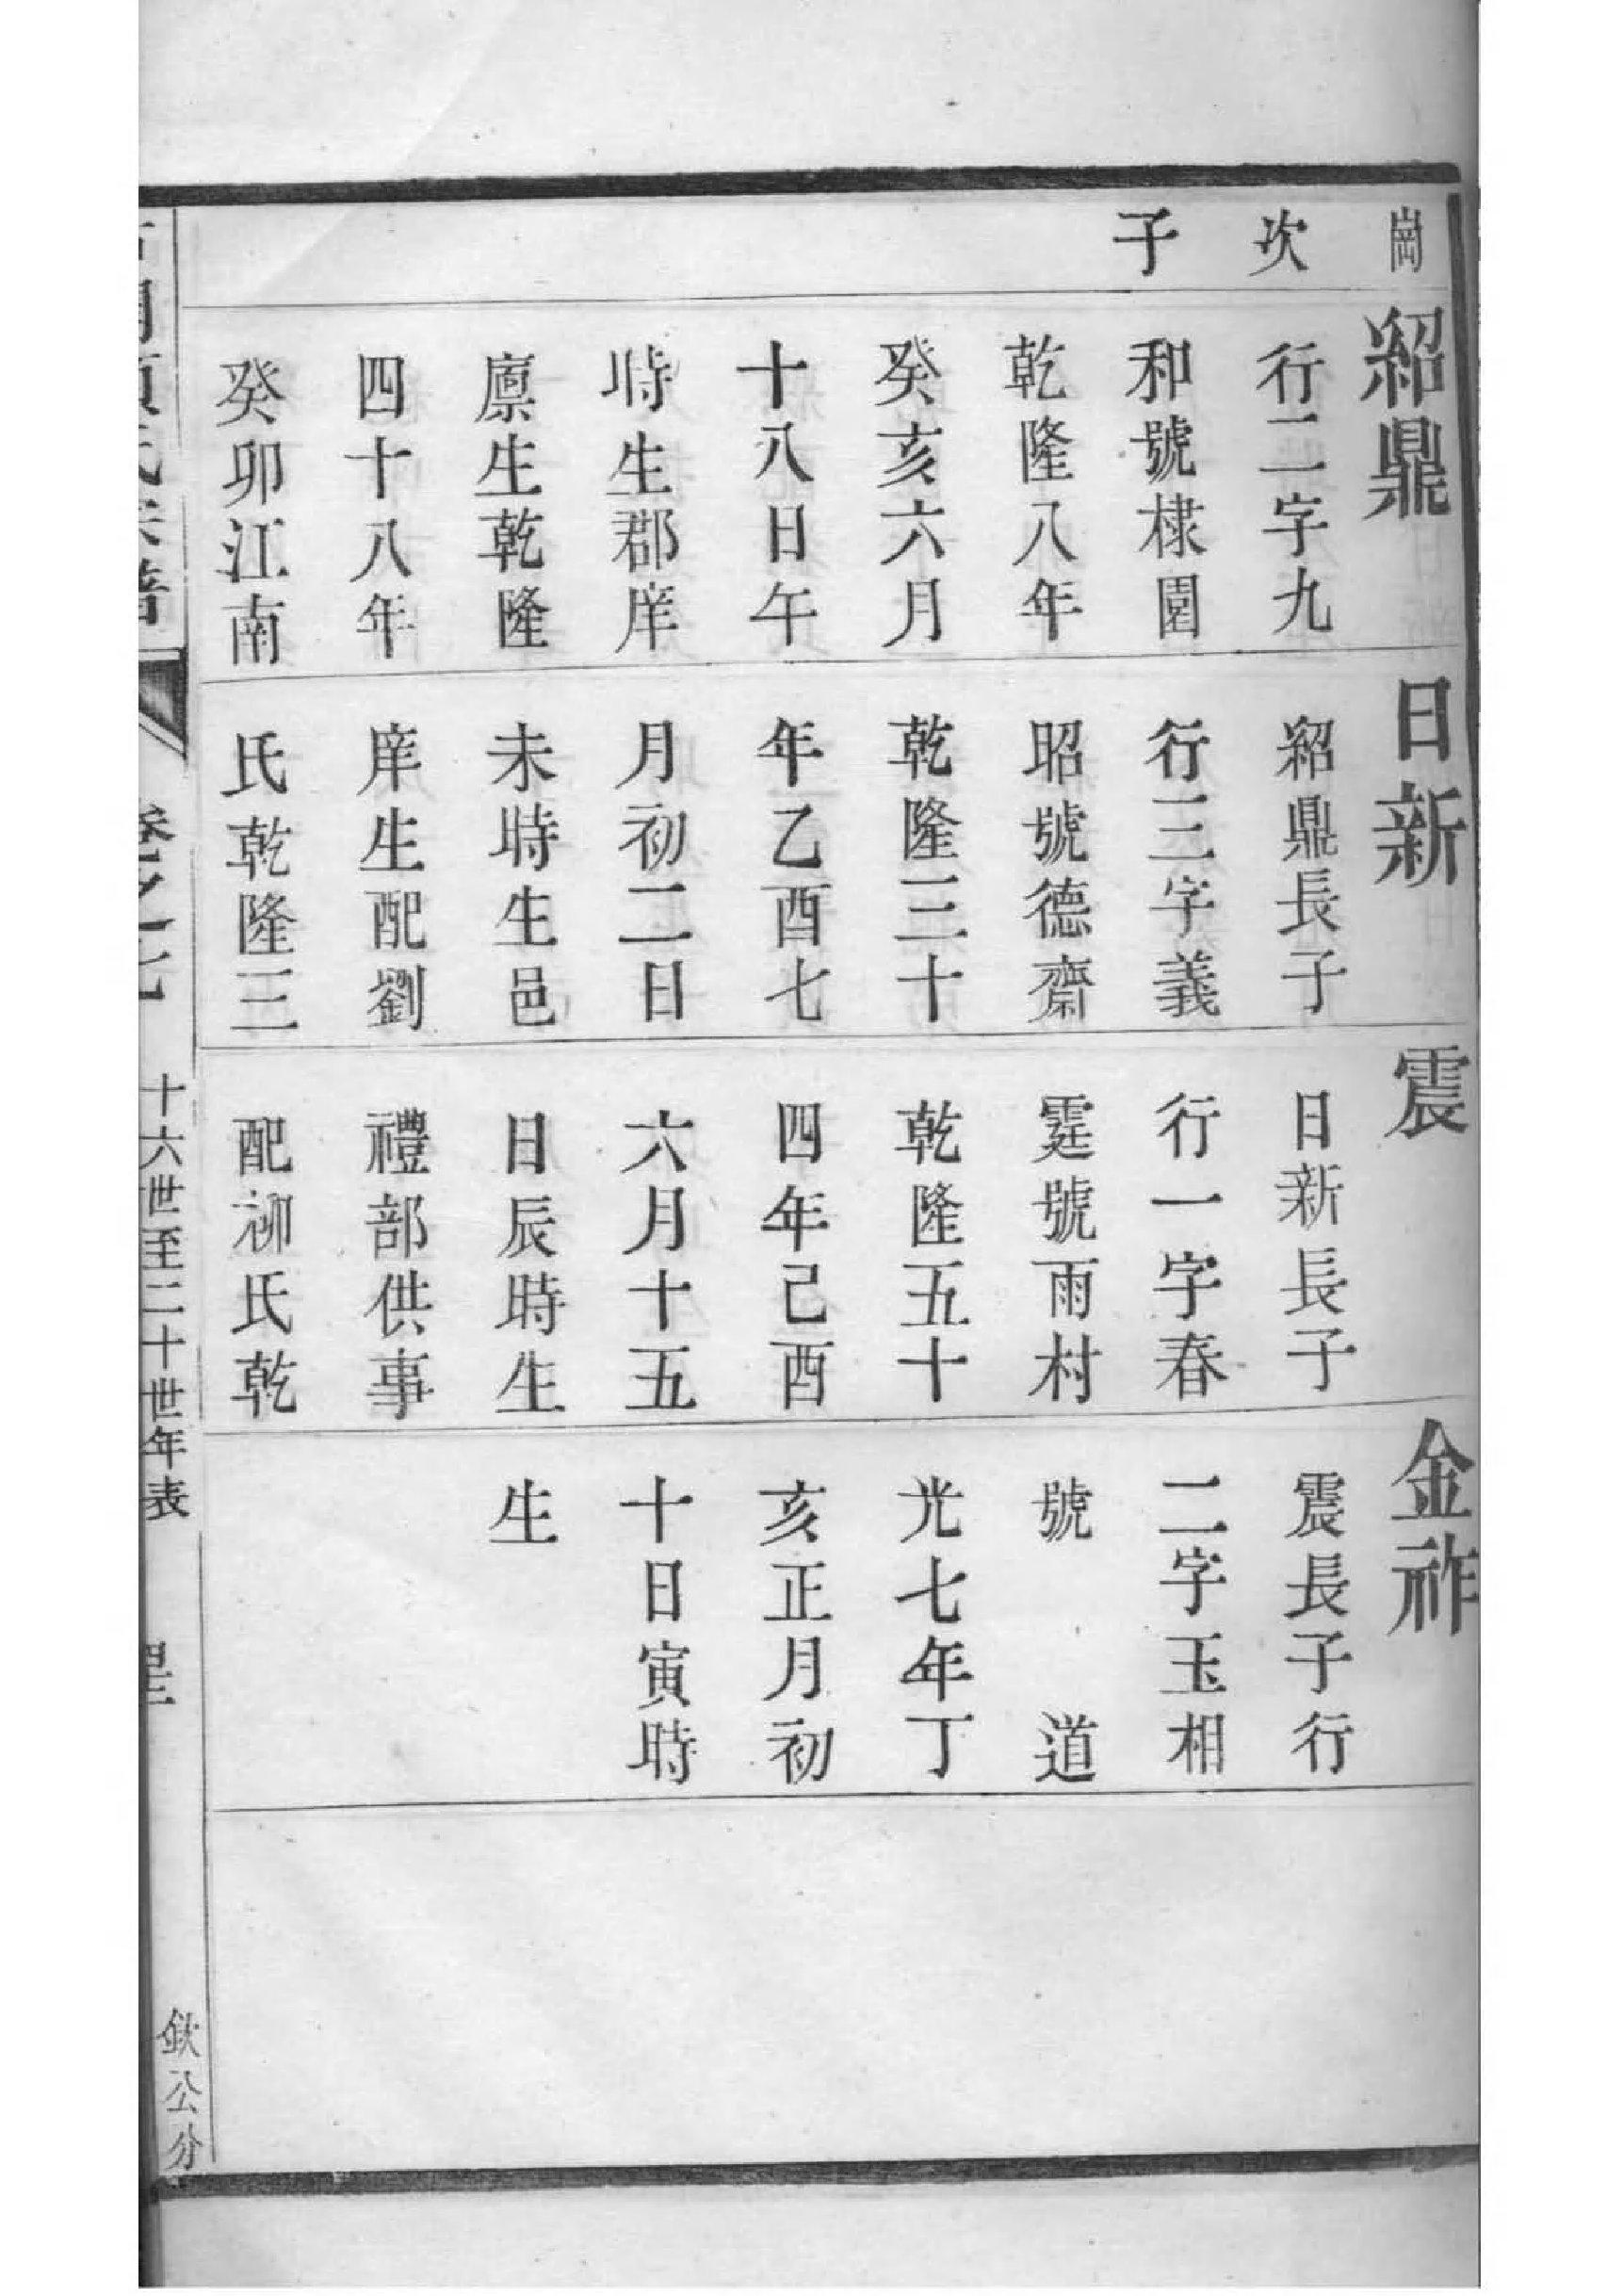 崗
次
子
紹鼎
行二字九
和號棣園
乾隆八年
癸亥六月
十八日午
時生郡庠
廪生乾隆
四十八年
癸卯江南
日新
紹鼎長子
行三字義
昭號德齋
乾隆三十
年乙酉七
月初二日
未時生邑
庠生配劉
氏乾隆三
震
日新長子
行一字春
霆號雨村
乾隆五十
四年己酉
六月十五
日辰時生
禮部供事
配柳氏乾
金祚
震長子行
二字玉相
號　　道
光七年丁
亥正月初
十日寅時
生
卷之十七
十六世至二十世年表
欽公分